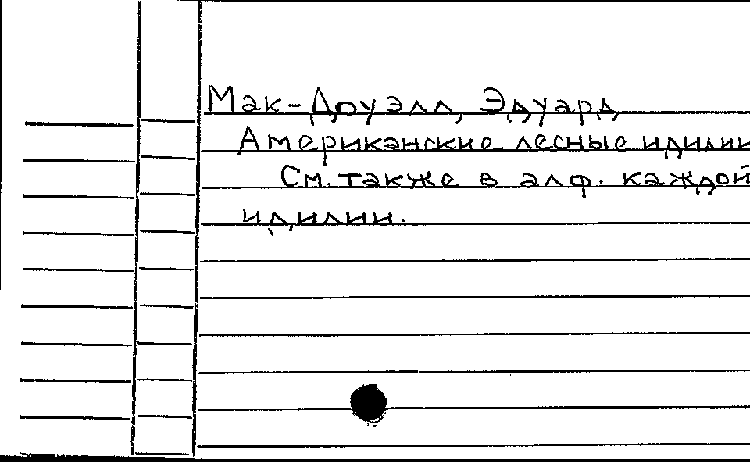 Мак-Доуэлл, Эдуард
Американские лесные идилии
См. также в алф. каждой
идилии.